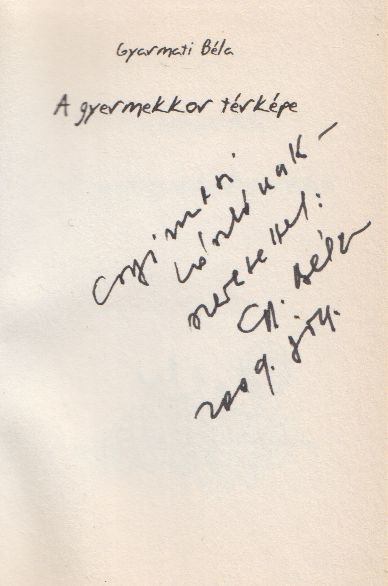 Gyarmati Béla
A gyermekkor térképe
Gyimesi
Lászlónak –
szeretettel:
Gy. Béla
2009.